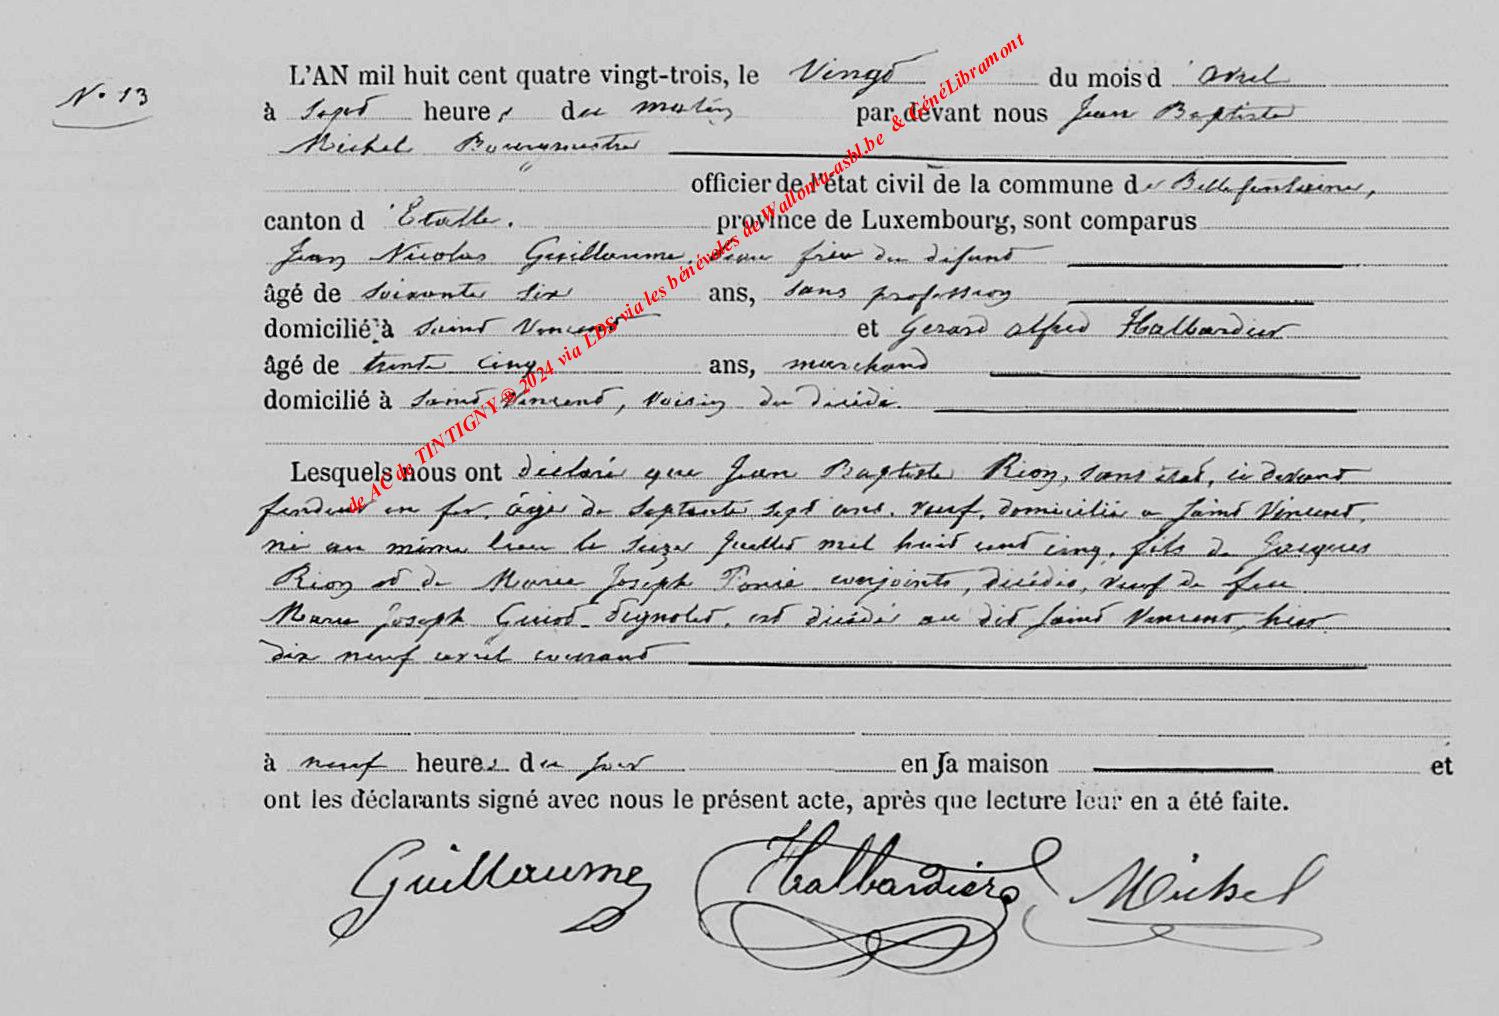 N° 13
L'AN mil huit cent quatre vingt-trois, le Vingt du mois d'avril
à sept heures du matin par devant nous Jean Baptiste
Michel Bourgmestre
officier de l'état civil de la commune de Bellefontaine,
canton d'Etalle. province de Luxembourg, sont comparus
Jean Nicolas Guillaume, beau frère du défunt
âgé de soixante six ans, sans profession
domicilié à Saint Vincent et Gerard Alfred Halbardier
âgé de trente cinq ans, marchand
domicilié à Saint Vincent, voisin du décédé.
Lesquels nous ont déclaré que Jean Baptiste Rion, sans état, ci devant
fendeur en fer, âgé de septante sept ans, veuf, domicilié a Saint Vincent,
né au même lieu le seize Juillet mil huit cent cinq, fils de Jacques
Rion et de Marie Joseph conjoints, décédés, veuf de feu
Marie Joseph est décédé au dit Saint Vincent, hier
dix neuf avril courant
à neuf heures du soir en sa maison et
ont les déclarants signé avec nous le présent acte, après que lecture leur en a été faite.
Guillaume Halbardier Michel
de AC de TINTIGNY ® 2024 via LDS via les bénévoles de Wallonia-asbl.be & GénéLibramont